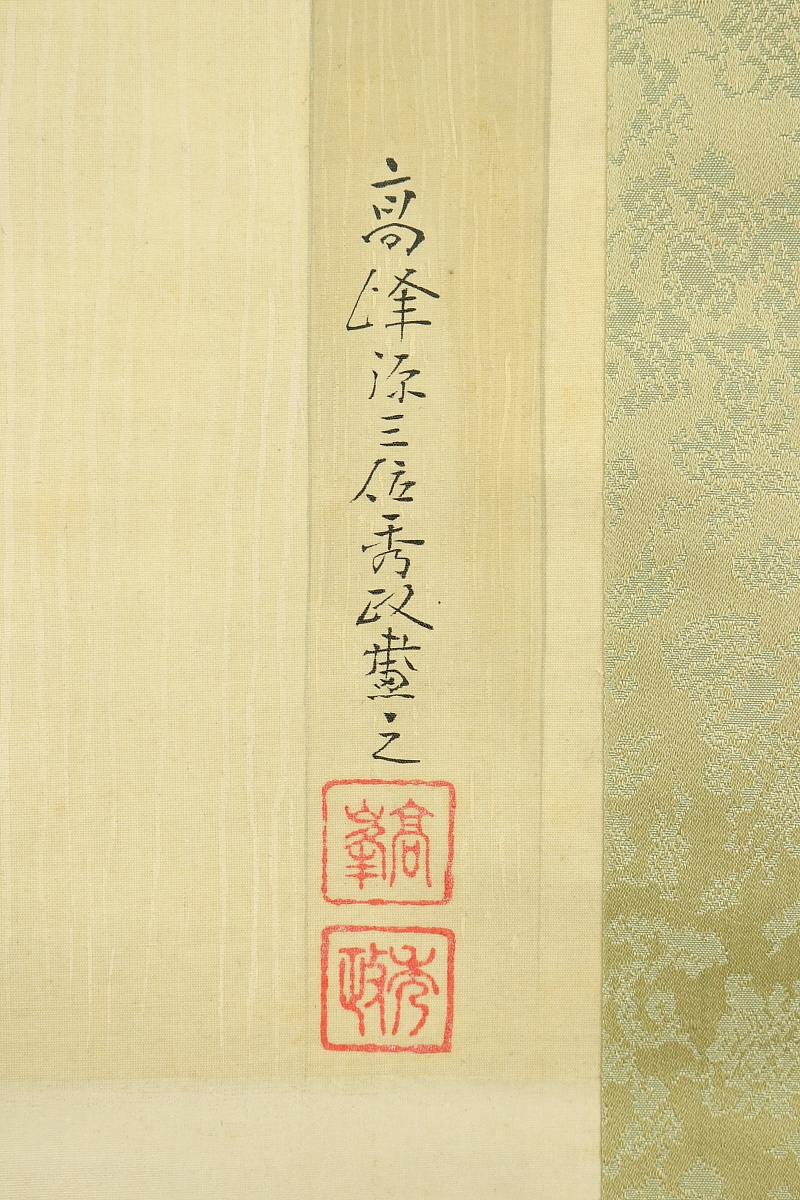 高峰源三位秀政畫之
高峯
秀政